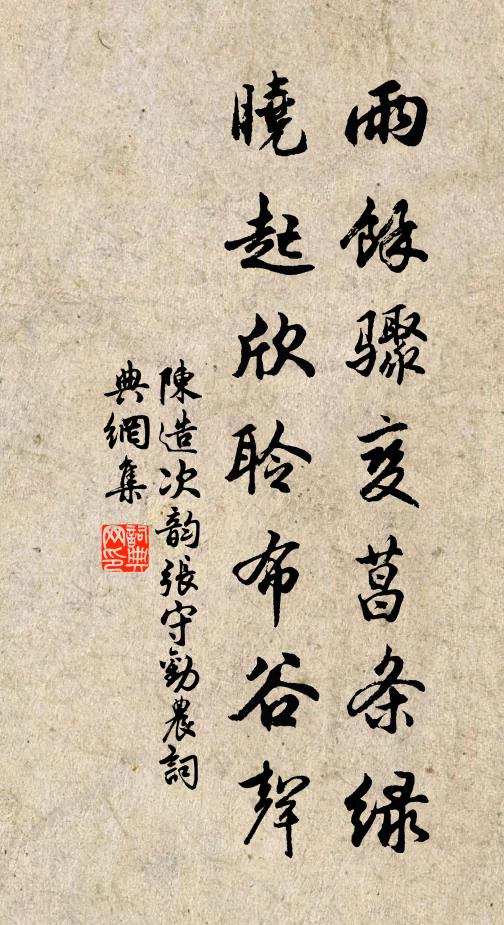 雨餘驟变菖条緑
曉起欣聆布谷聲
陳造次韵張守勸農詞
典網集
詞典网印